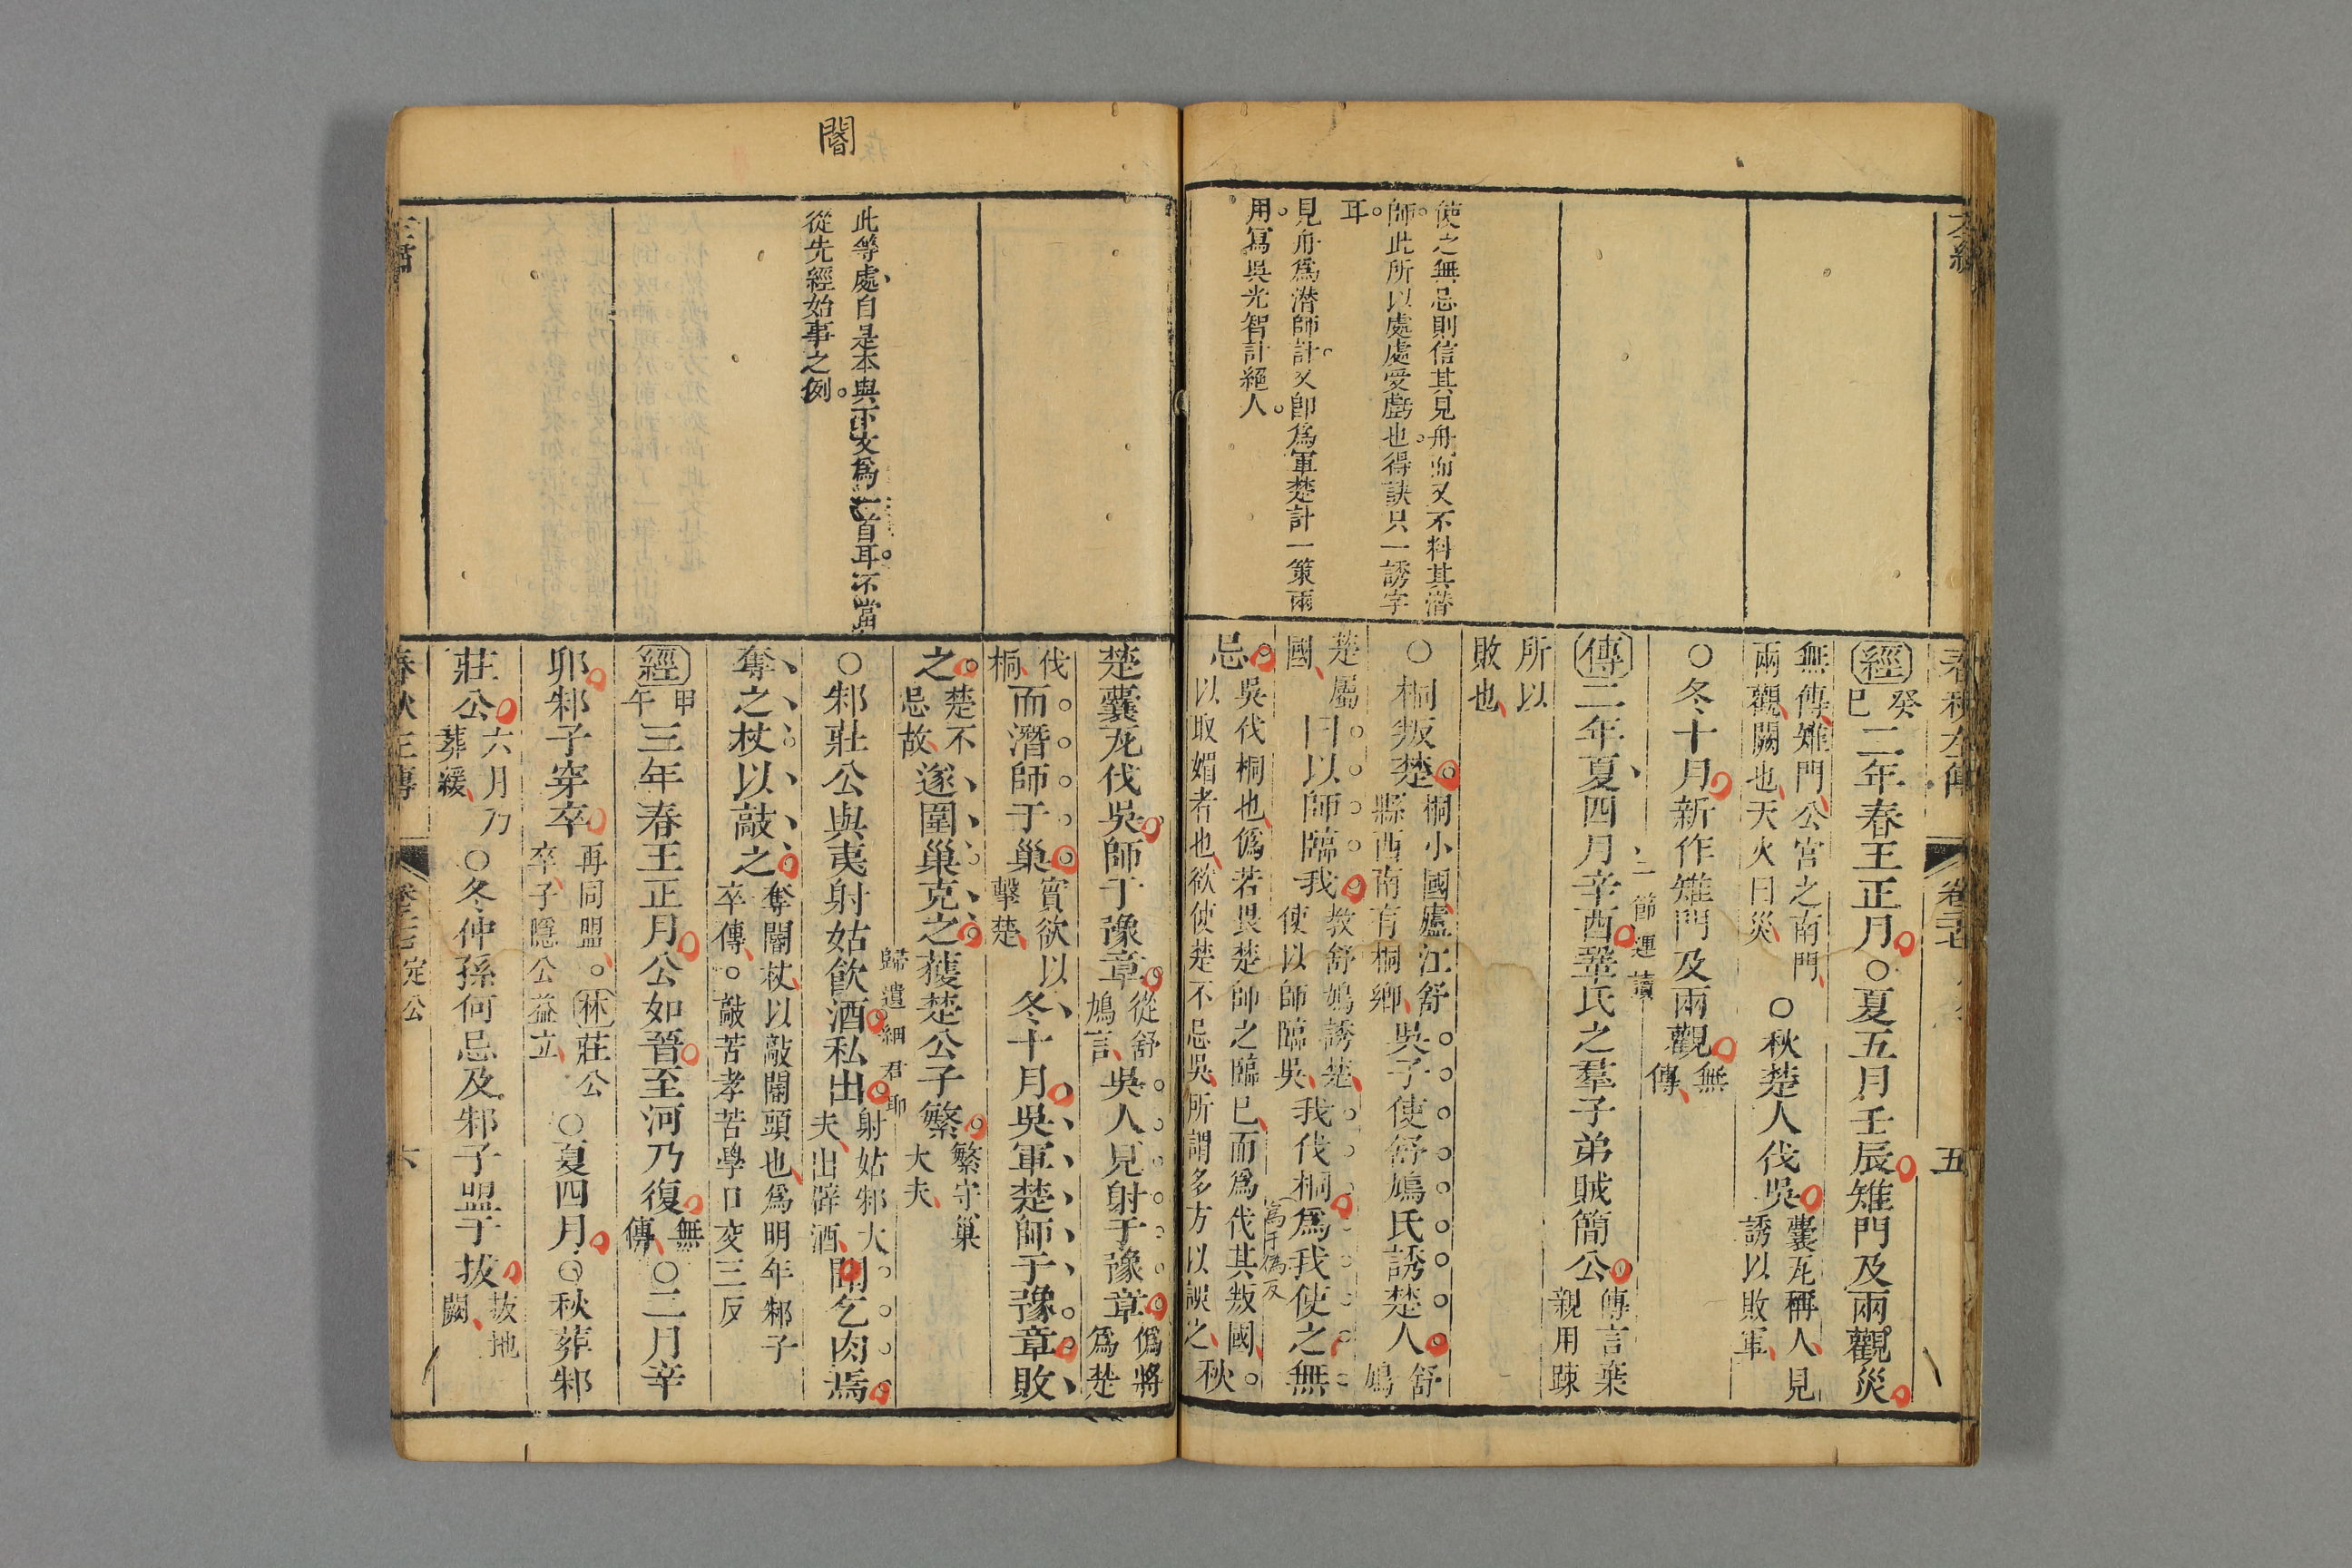 使之無忌則信其見舟而又不料其潛
師此所以處處受虧也得訣只一誘字
耳
見舟為潛師計又卽為軍楚計一策兩
用寫吳光智計絕人
春秋左傳
五
經 癸巳 二年春王正月○夏五月壬辰雉門及兩觀災
無傳雉門公宮之南門兩觀闕也天火曰災 ○秋楚人伐吳 囊瓦稱人見誘以敗軍
○冬十月新作雉門及兩觀 無傳
二節連讀
傳 二年夏四月辛酉鞏氏之羣子弟賊簡公 傳言棄親用踈
所以敗也
○桐叛楚 桐小國廬江舒縣西南有桐鄉 吳子使舒鳩氏誘楚人 舒鳩
楚屬國 曰以師臨我 教舒鳩誘楚使以師臨吳 我伐桐為我使之無
為于偽反
忌 吳伐桐也偽若畏楚師之臨已而為伐其叛國以取媚者也欲使楚不忌吳所謂多方以誤之 秋
閽
此等處自是本與下文為一首耳不當
從先經始事之例
楚囊瓦伐吳師于豫章 從舒鳩言 吳人見舟于豫章 偽將為楚
伐桐 而潛師于巢 實欲以擊楚 冬十月吳軍楚師于豫章敗
之 楚不忌故 遂圍巢克之獲楚公子繁 繁守巢大夫
歸遺細君耶
○邾莊公與夷射姑飲酒私出 射姑邾大夫出辟酒 閽乞肉焉
奪之杖以敲之 奪閽杖以敲閽頭也為明年邾子卒傳○敲苦孝苦學口交三反
經 甲午 三年春王正月公如晉至河乃復 無傳 ○二月辛
卯邾子穿卒 再同盟○林莊公卒子隱公益立 ○夏四月○秋葬邾
莊公 六月乃葬緩 ○冬仲孫何忌及邾子盟于拔 拔地闕
春秋左傳
定公
六